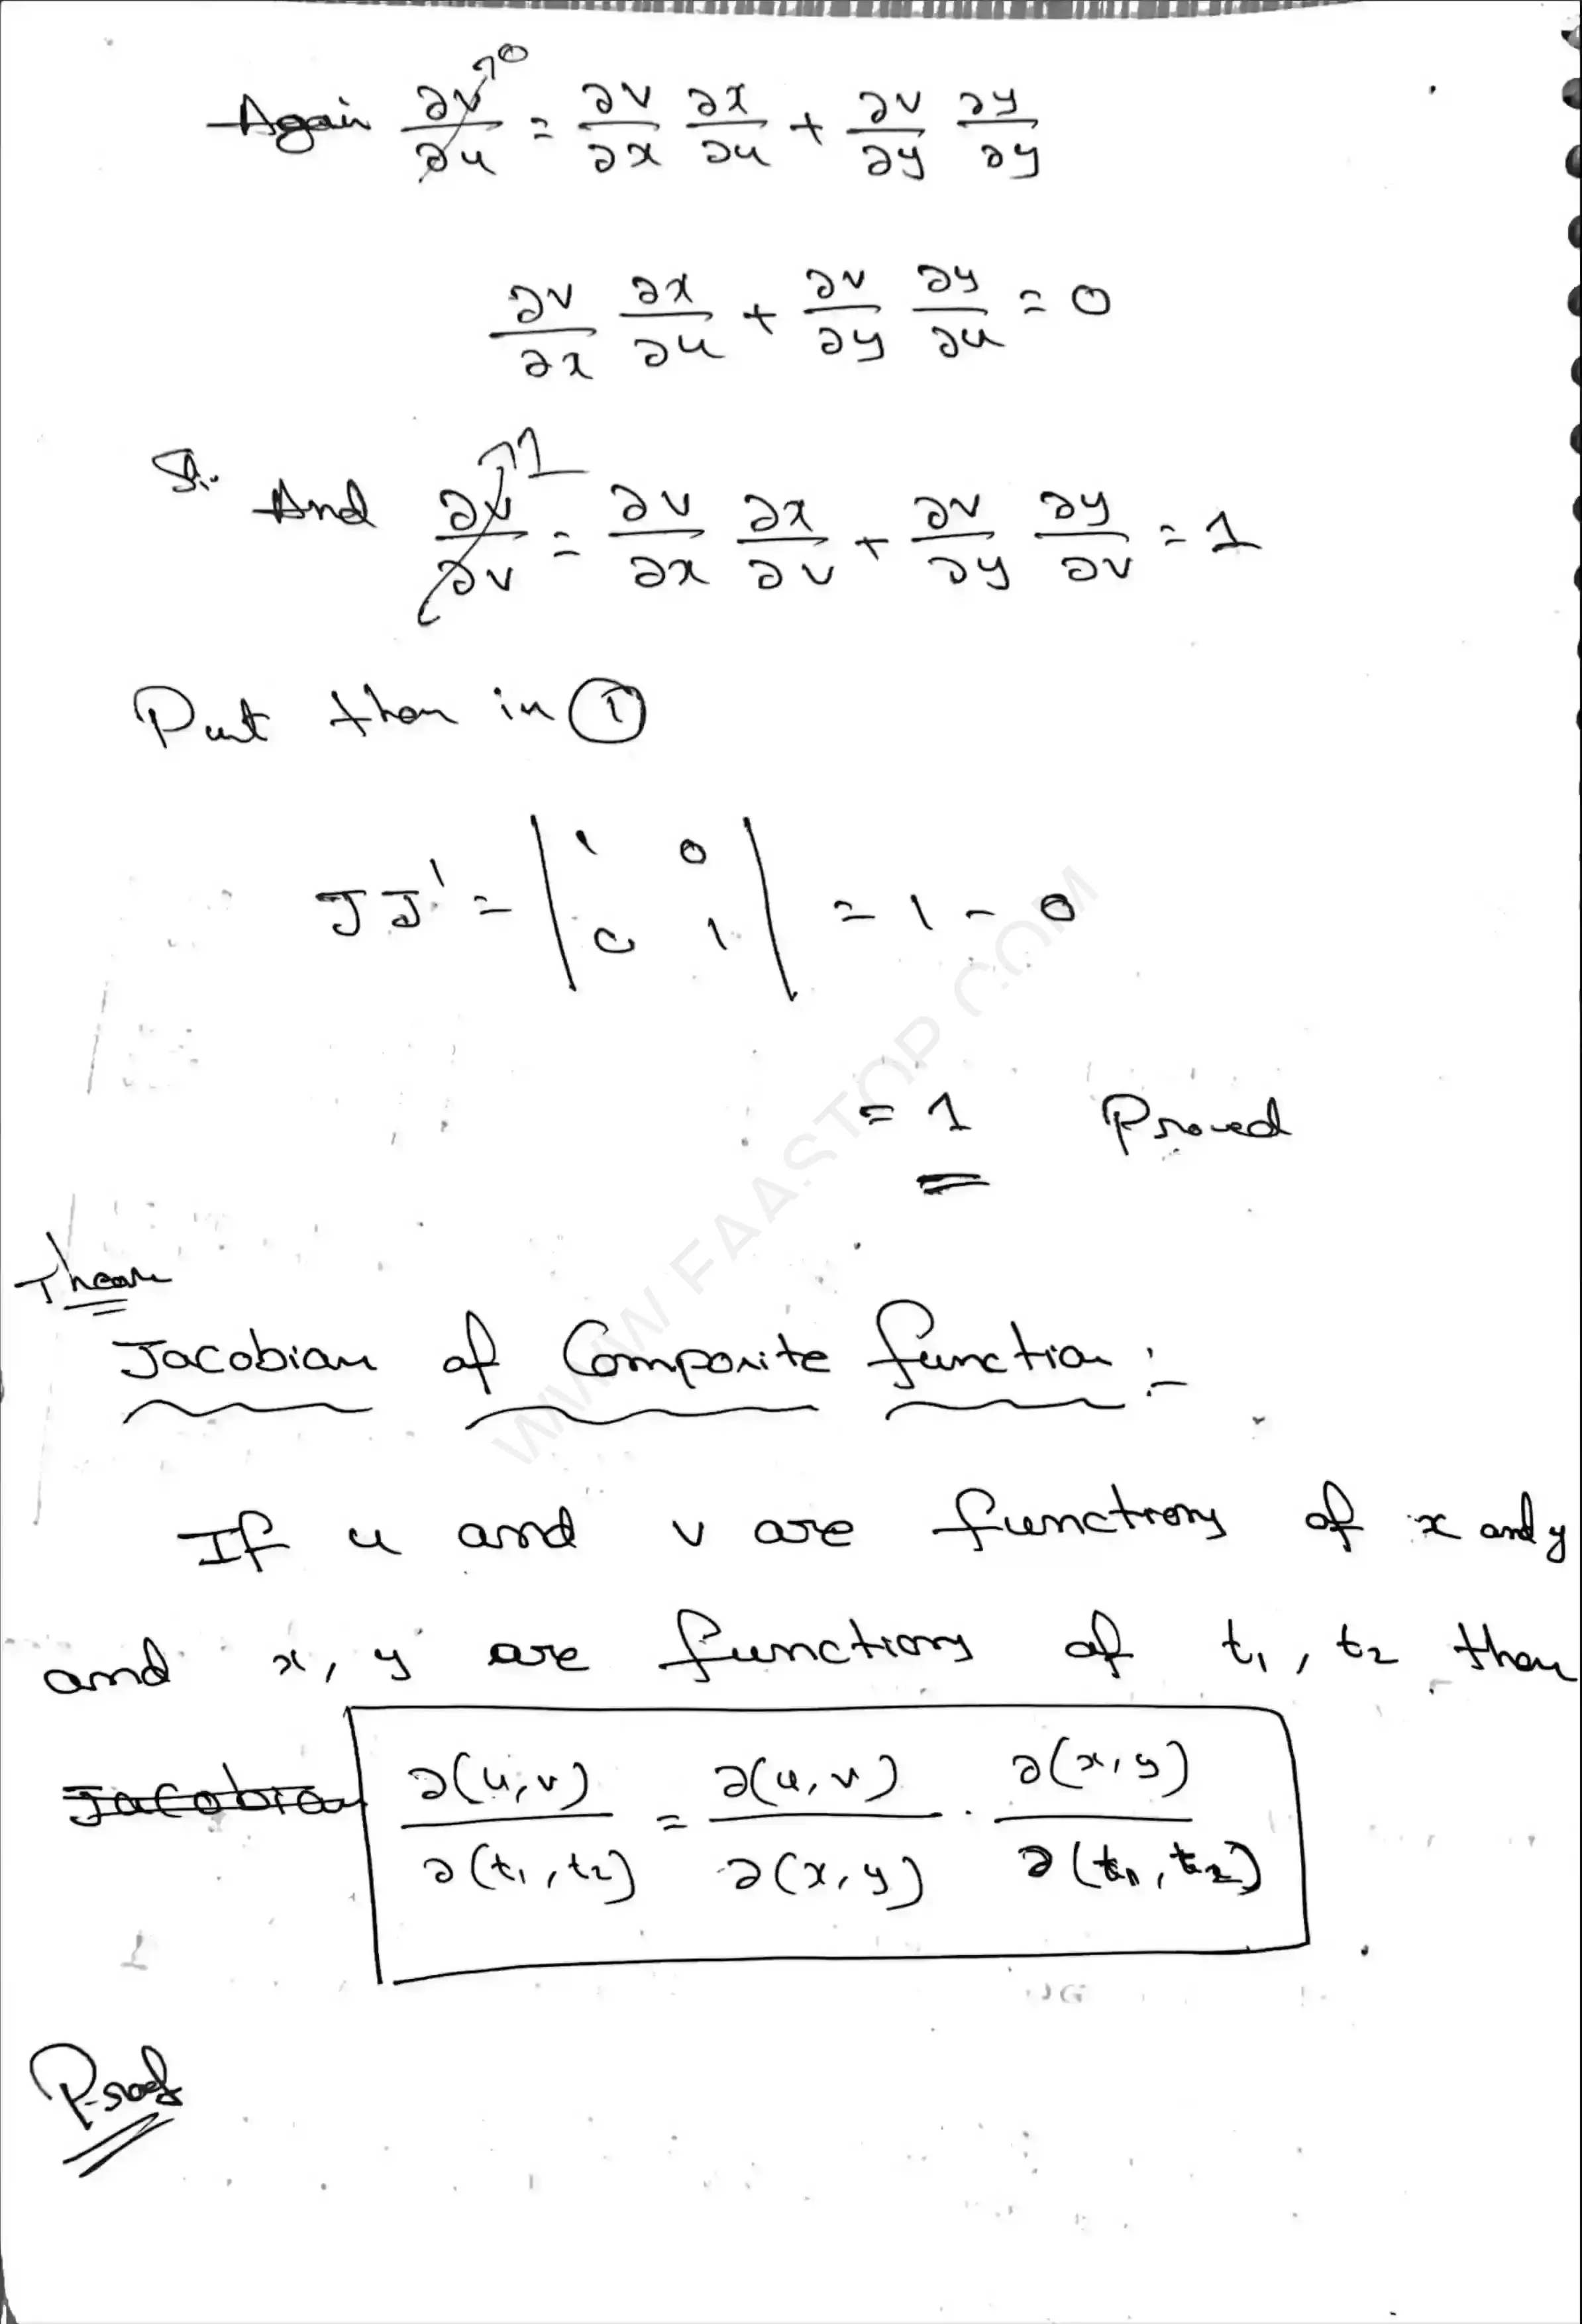 Again ∂v/∂u →0 = ∂v/∂x ∂x/∂u + ∂v/∂y ∂y/∂y
∂v/∂x ∂x/∂u + ∂v/∂y ∂y/∂u = 0
And ∂v/∂v →1 = ∂v/∂x ∂x/∂v + ∂v/∂y ∂y/∂v = 1
Put then in ①
JJ' = | 1 0 | = 1 - 0
| 0 1 |
= 1 Proved
Jacobian of Composite function :-
If u and v are functions of x and y
and x, y are functions of t₁, t₂ then
Jacobian ∂(u,v)/∂(t₁,t₂) = ∂(u,v)/∂(x,y) · ∂(x,y)/∂(t₁,t₂)
Proof
WWW.FAASTOP.COM